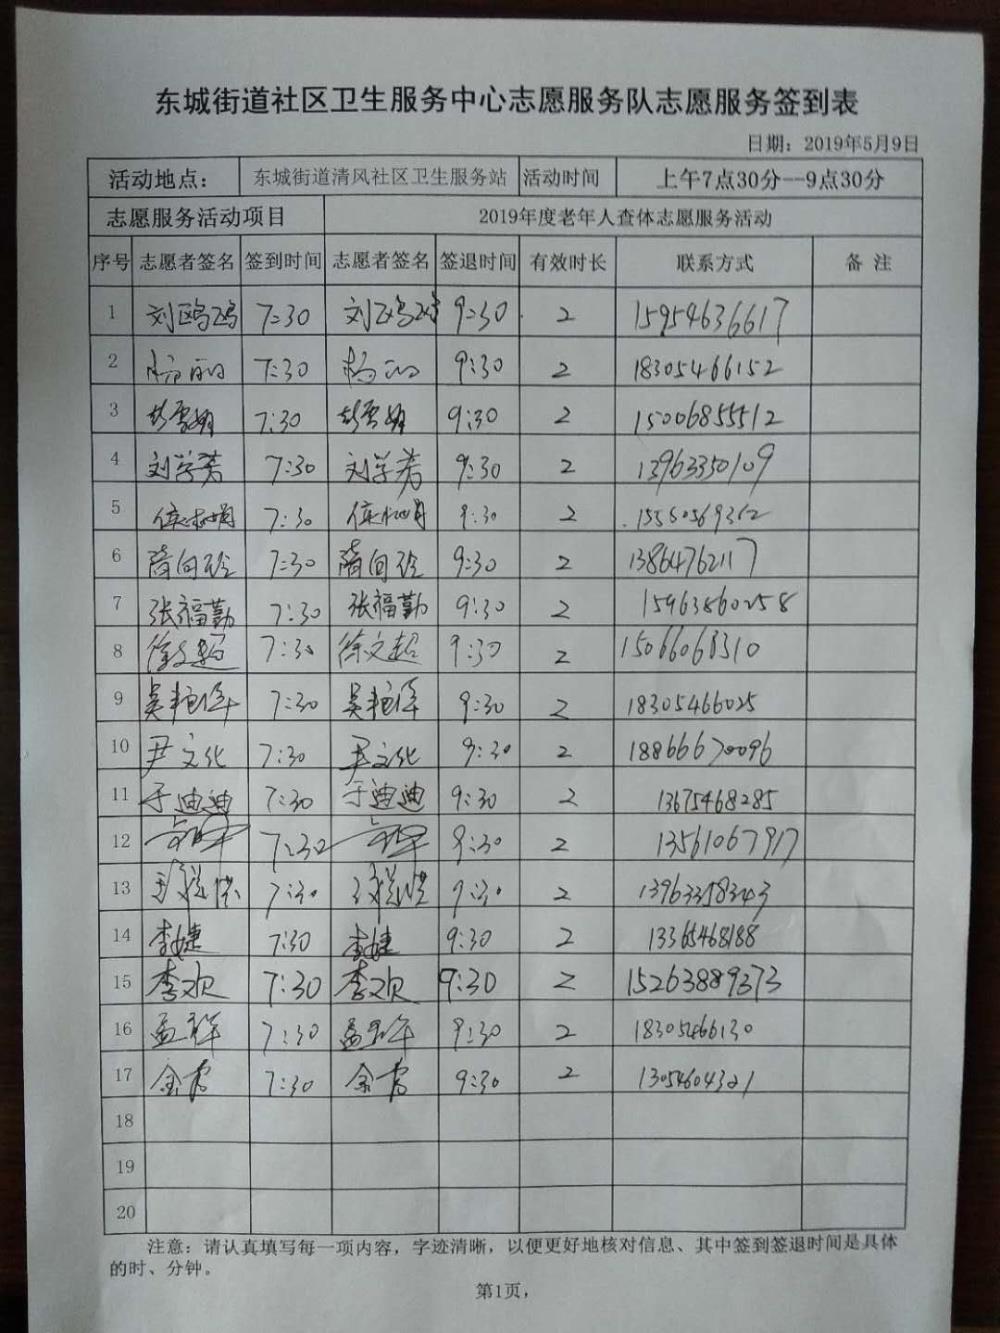 东城街道社区卫生服务中心志愿服务队志愿服务签到表
日期：2019年5月9日
活动地点： 东城街道清风社区卫生服务站 活动时间 上午7点30分--9点30分
志愿服务活动项目 2019年度老年人查体志愿服务活动
序号 志愿者签名 签到时间 志愿者签名 签退时间 有效时长 联系方式 备 注
1 刘鸥鸥 7:30 刘鸥鸥 9:30 2 15954636617
2 杨丽 7:30 杨丽 9:30 2 18305466152
3 彭雪娟 7:30 彭雪娟 9:30 2 15006855512
4 刘学芳 7:30 刘学芳 9:30 2 13963350109
5 7:30 9:30 2 15550569312
6 隋向玲 7:30 隋向玲 9:30 2 13864762117
7 张福勤 7:30 张福勤 9:30 2 15963860258
8 徐文超 7:30 徐文超 9:30 2 15066068310
9 吴艳萍 7:30 吴艳萍 9:30 2 18305466025
10 尹文化 7:30 尹文化 9:30 2 18866670096
11 于迪迪 7:30 于迪迪 9:30 2 13675468285
12 7:30 9:30 2 13561067917
13 7:30 9:30 2 13963358343
14 李婕 7:30 李婕 9:30 2 13365468188
15 李欢 7:30 李欢 9:30 2 15263889373
16 孟祥 7:30 孟 9:30 2 18305466130
17 金霄 7:30 金霄 9:30 2 13054604321
18
19
20
注意：请认真填写每一项内容，字迹清晰，以便更好地核对信息、其中签到签退时间是具体
的时、分钟。
第1页，